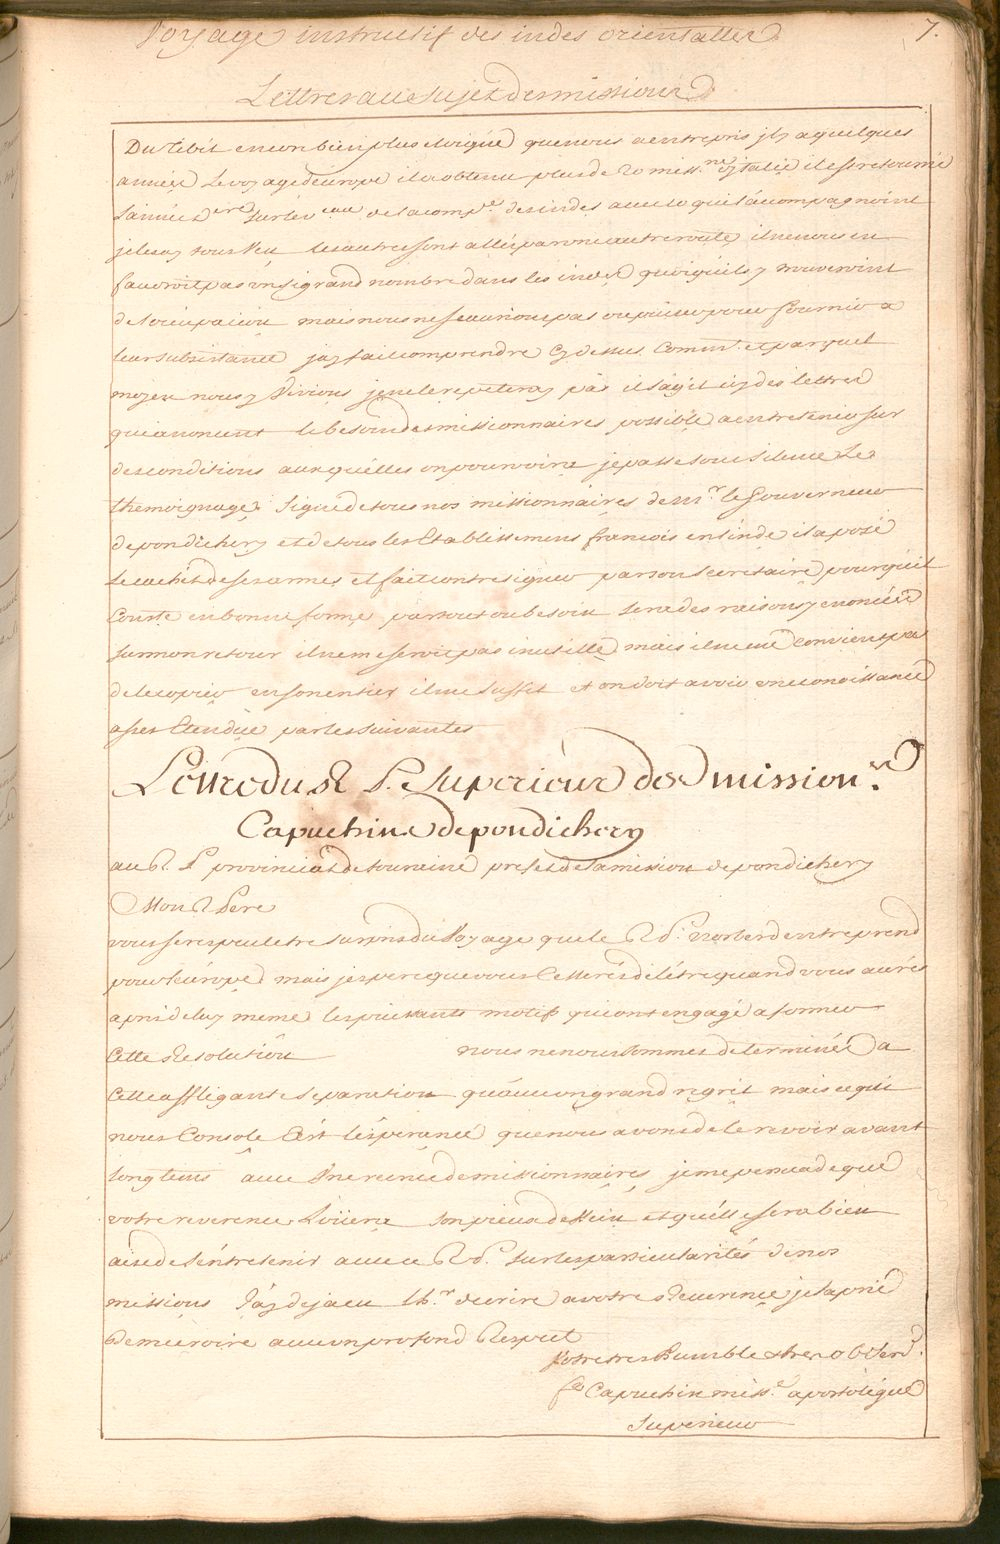 Voyage instructif des indes orientalles
7.
Lettres au sujet des missions
Du Tébit encor bien plus eloigné que nous a entrepris jl y a quelques
année Le voyage d'europe il a obtenu plus de 20 miss.nes d'jtalie il est retourné
L'année d.ere sur les v.eau de la comp.e des indes avec 10 qui l'accompagnoint
je les ay tous veu les autres sont allés par une autre route il ne nous en
faudroit pas un si grand nombre dans les indes quoiqu'ils y trouveroint
de l'occupation mais nous ne scaurions pas ou puiser pour fournir a
leur subsistance j'ay fait comprendre cy dessus comm.t et par quel
moien nous y Vivions je ne le repeteray pas il s'agit icy des lettres
qui anoncent le besoin des missionnaires possible a entretenir sur
des conditions auxquelles on pourvoira je passe sous silence Le
themoignage signé de tous nos missionnaires de M.r le Gouverneur
de pondichery et de tous les Etablissemens francois en l'inde il a posé
le cachet de ses armes et fait contresigner par son secretaire pour qu'il
Conste en bonne forme par tout ou besoin sera des raisons y enoncée
sur mon retour il ne me seroit pas inutille mais il ne me convient pas
de le copier en son entier il me suffit et on doit avoir une conoissance
asses Etendüe par les suivantes
Lettre du R P. Superieur des mission.rs
Capuchins de pondichery
au R. P provincial de touraine prefet de la mission de pondichery
Mon R Pere
vous seres peut etre surpris du Voyage que le R P. norberd entreprend
pour l'éurope mais j'espere que vous Cesserés de l'étre quand vous aurés
apris de luy meme les puissants motifs qui ont engagé a former
Cette Resolution nous ne nous sommes determinés a
Cette affligante separation qu'avec un grand regrét mais ce qui
nous Console C'est l'esperance que nous avons de le revoir avant
longtems avec Une recrue de missionnaires je me persuade que
votre reverence Loüera son pieux dessein et qu'elle sera bien
aise de s'éntretenir avec ce R P. sur les particularités de nos
missions J'ay deja eu l'h.r d'ecrire a votre Reverence je la prie
de me croire avec un profond Respect
Votre tres humble & tres ob. Serv.
f.e Capuchin miss.e apostolique
Superieur